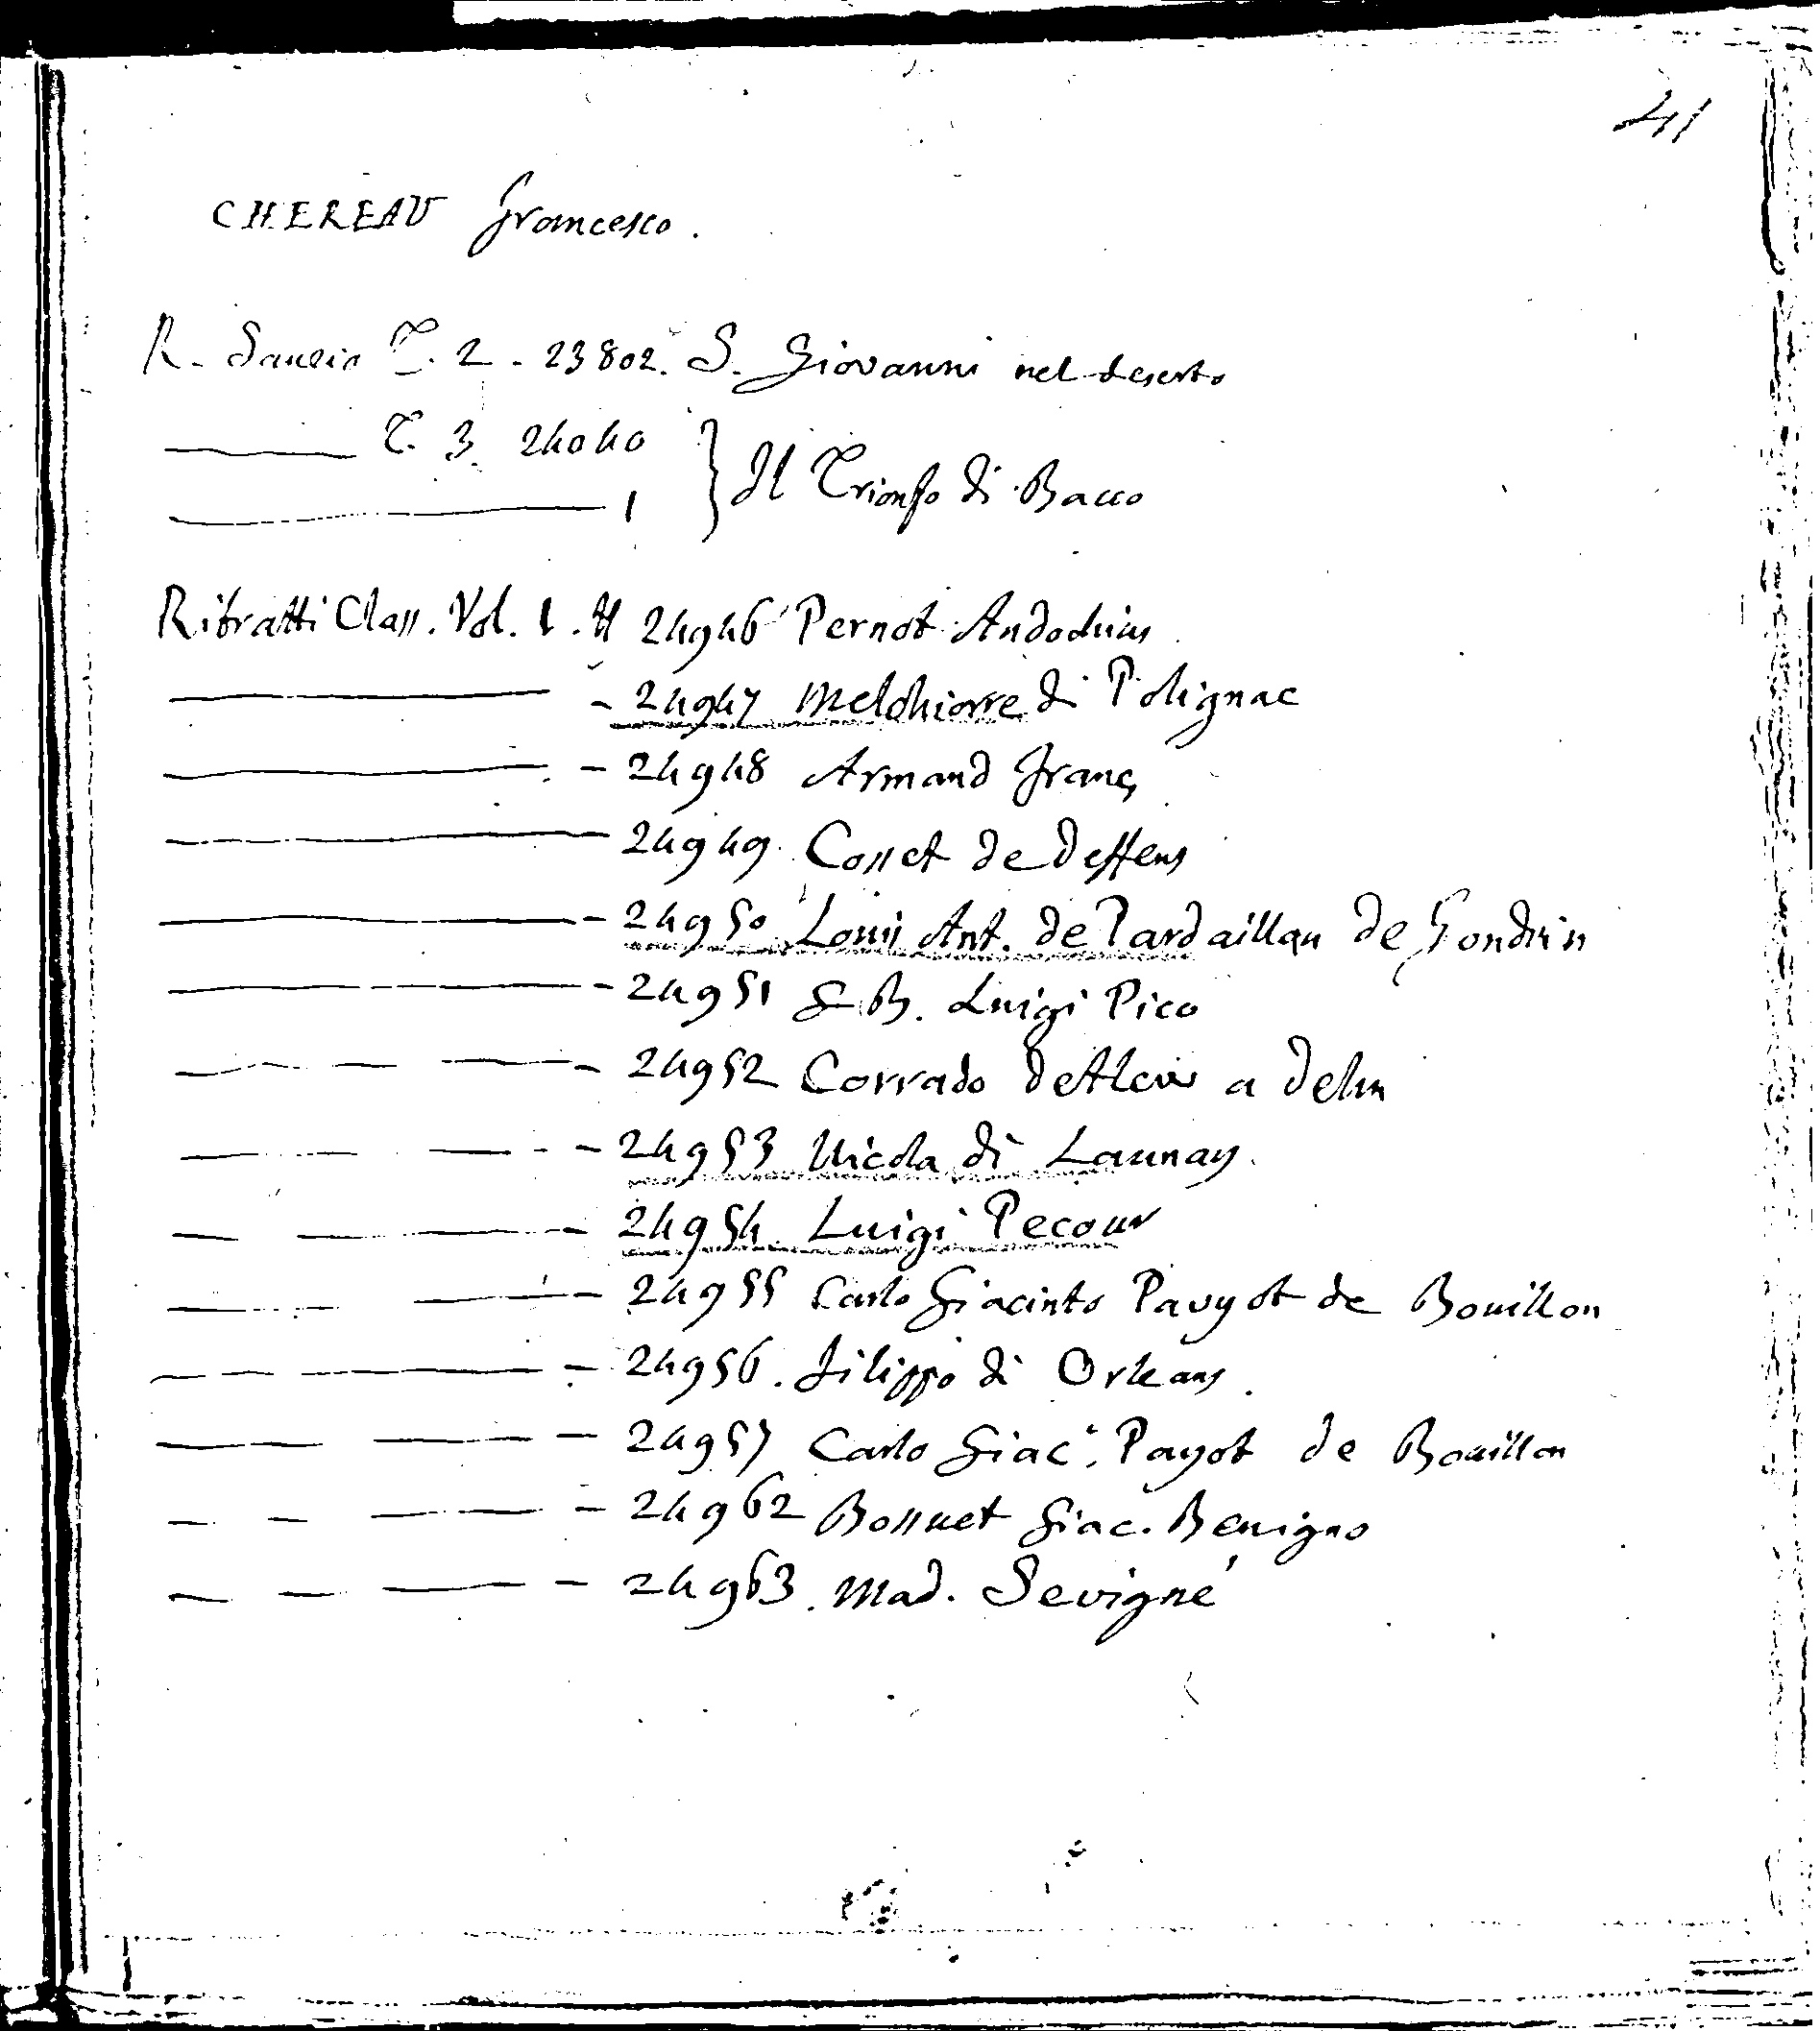 41
CHEREAU Francesco.
R. Sanzio T. 2 - 23802. S. Giovanni nel deserto
T. 3. 24040 } Il Trionfo di Bacco
1
Ritratti Class. Vol. 1. # 24946 Pernot
- 24947 Melchiorre di Polignac
- 24948 Armand Franç
24949 Cosset de Deffens
- 24950 Louis Ant. de Pardaillan de Gondrin
- 24951 G B. Luigi Pico
- 24952 Corrado a Dehn
- 24953 Nicola di Launay.
- 24954 Luigi Pecour
- 24955 Carlo Giacinto Pavyot de Bouillon
- 24956. Filippo di Orleans
- 24957 Carlo Giac. Payot de Bouillon
- 24962 Bossuet Giac. Benigno
- 24963. Mad. Sevigné